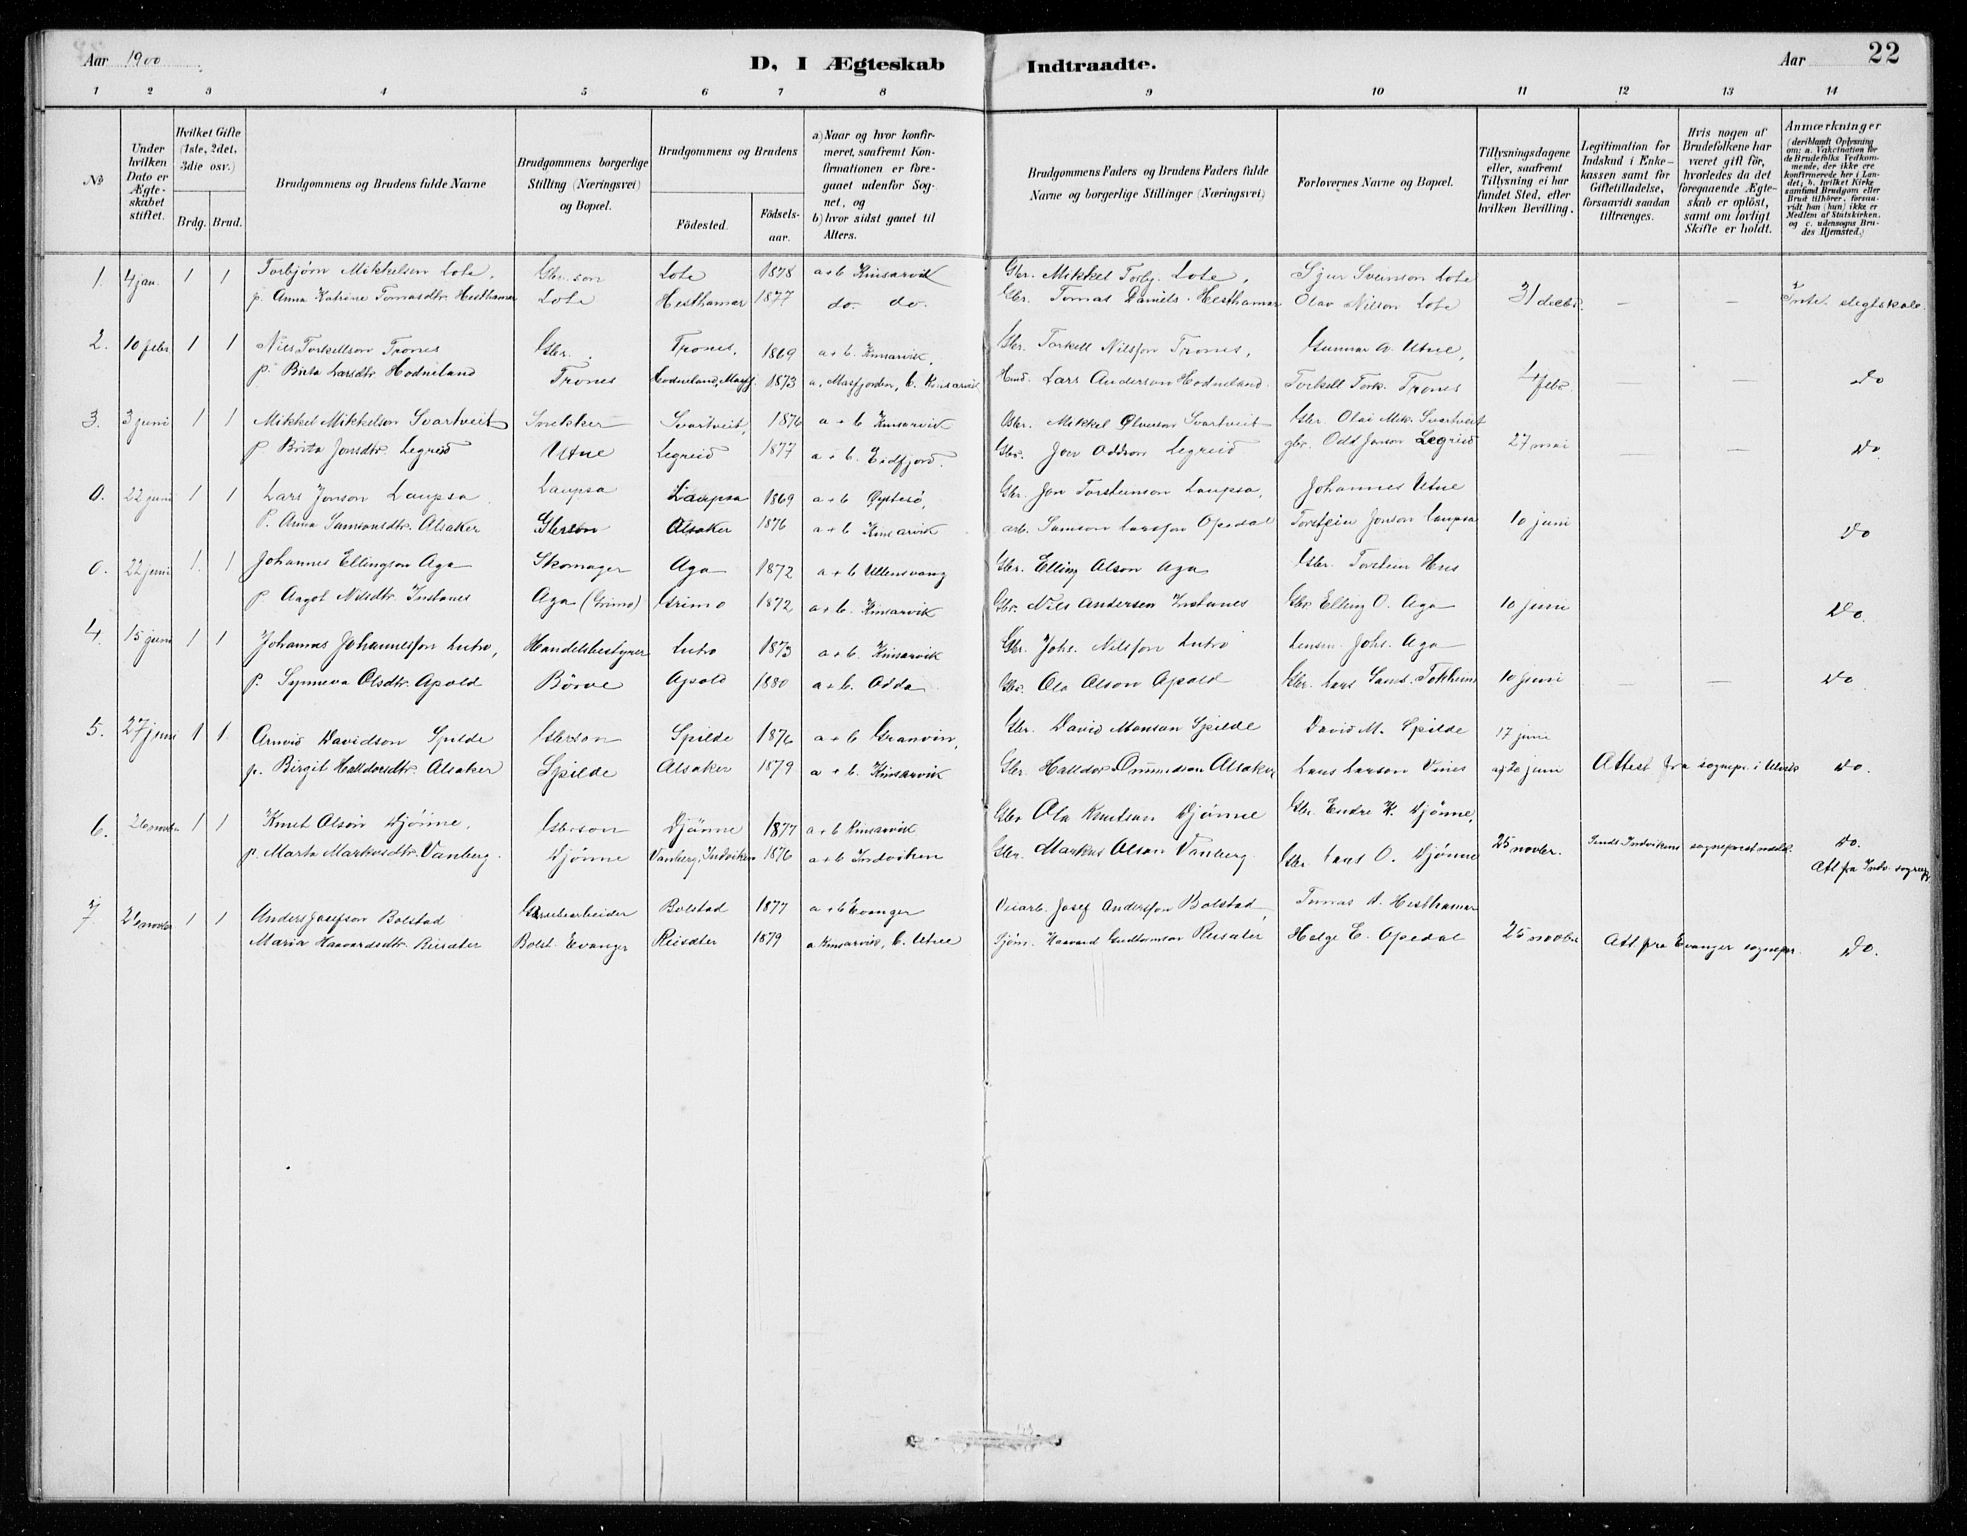 Aar 1900
D, I Ægteskab Indtraadte.
Aar 22
1 2 3 4 5 6 7 8 9 10 11 12 13 14
No
Under hvilken Dato er Ægteskabet stiftet.
Hvilket Gifte (1ste, 2det, 3die osv.)
Brdg. Brud.
Brudgommens og Brudens fulde Navne
Brudgommens borgerlige Stilling (Næringsvei) og Bopæl.
Brudgommens og Brudens
Födested.
Födselsaar.
a) Naar og hvor konfirmeret, saafremt Konfirmationen er foregaaet udenfor Sognet, og
b) hvor sidst gaaet til Alters.
Brudgommens Faders og Brudens Faders fulde Navne og borgerlige Stillinger (Næringsvei)
Forlovernes Navne og Bopæl.
Tillysningsdagene eller, saafremt Tillysning ei har fundet Sted, efter hvilken Bevilling.
Legitimation for Indskud i Enkekassen samt for Giftetilladelse, forsaavidt saadan tiltrænges.
Hvis nogen af Brudefolkene har været gift för, hvorledes da det foregaaende Ægteskab er oplöst, samt om lovligt Skifte er holdt.
Anmærkninger (deriblandt Oplysning om: a. Vakcination for de Brudefolks Vedkommende, der ikke ere konfirmerede her i Landet; b. hvilket Kirkesamfund Brudgom eller Brud tilhörer, forsaavidt han (hun) ikke er Medlem af Statskirken, og c. udensogns Brudes Hjemsted.)
1. 4 jan. 1 1 Torbjørn Mikkelson Lote, Gbr.son Lote 1878 a+b Kinsarvik Gbr. Mikkel Torbj. Lote, Sjur Sveinson Lote
p. Anna Katrine Tomasdtr. Hesthamar Lote Hesthamar 1877 do. do. Gbr. Tomas Daniels. Hesthamar Olav Nilson Lote 31 decbr. — — Inte. slegtskab.
2. 10 febr 1 1 Nils Torkellson Trones Gbr. Trones, 1869 a+b. Kinsarvik, Gbr. Torkell Nilsson Trones, Gunnar A. Utne,
p. Brita Larsdtr Hodneland Trones Hodneland, Masfj. 1873 a, Masfjorden, b. Kinsarvik Lars Anderson Hodneland. Torkell Tork. Trones 4 febr — Do
3. 3 juni 1 1 Mikkel Mikkelson Svartveit Snekker Svartveit, 1876 a+b Kinsarvik Gbr. Mikkel Svartveit Gbr. Olai Mik. Svartveit
p Brita Jonsdtr. Legreid Utne Legreid 1877 a+b. Eidfjord. Gbr. Jon Oddson Legreid gbr. Odd Jonson Legreid 27 mai — — Do.
0. 22 juni 1 1 Lars Jonson Laupsa Laupsa Laupsa 1869 a+b Øystesö, Gbr. Jon Torsteinson Laupsa, Johannes Utne
p. Anna Samsonsdtr. Alsaker Gbrson Alsaker 1876 a+b Kinsarvik arb. Samson Larsson Opedal Torstein Jonson Laupsa 10 juni Do
0. 22 juni 1. 1 Johannes Ellingson Aga Skomager Aga 1872 a+b Ullensvang Gbr. Elling Olson Aga Gbr. Torstein Hus
p. Angot Nilsdtr. Instanes Aga (Grimo) Grimo 1872 a+b. Kinsarvik Gbr. Nils Andersen Instanes Gbr. Elling O. Aga 10 juni Do.
4. 15 juni 1 1 Johannes Johannesson Lutro, Handelsbestyrer Lutro 1873 a+b. Kinsarvik Gbr. Johs. Nilsson Lutro Lensm. Johs. Aga
p. Synneva Olsdtr. Apold Börve Apold 1880 a+b. Odda Gbr. Ola Olson Apold Gbr. Lars Tokheim 10 juni — — Do.
5. 27 juni 1 1. Arnvid Davidson Spilde Gbrson Spilde 1876 a+b Granvin, Gbr. David Monsan Spilde David M. Spilde 17 juni
p. Birgit Halldorsdtr. Alsaker Spilde Alsaker 1879 a+b. Kinsarvik Gbr. Halldor Alsaker Lars Larson Vines 20 juni Attest fra sognepr. i Ulvik Do.
6. 26 novbr 1 1 Knut Olson Djönne, Gbrson Djönne 1877 a+b Kinsarvik Gbr Ola Knutson Djönne Gbr. Endre K. Djönne,
p. Marta Markusdtr. Vanberg. Djönne Vanberg, Indviken 1876 a+b Indviken Gbr. Markus Olson Vanberg. Gbr Lars O. Djönne 25 novbr. Sendt Indvikens sogneprest meld. Do.
Att fra Indv. sognepr.
7 26 novbr 1 1 Anders Josefson Bolstad Bolstad 1877 a+b Evanger Veiarb. Josef Andersson Bolstad, Tomas D. Hesthamar
Maria Haavardsdtr. Reisæter Bolst. Evanger Reisæter 1879 a Kinsarvik, b. Utne Haavard Reisæter Helge E. Opedal 25 novbr Att. fra Evanger sognepr. Do.